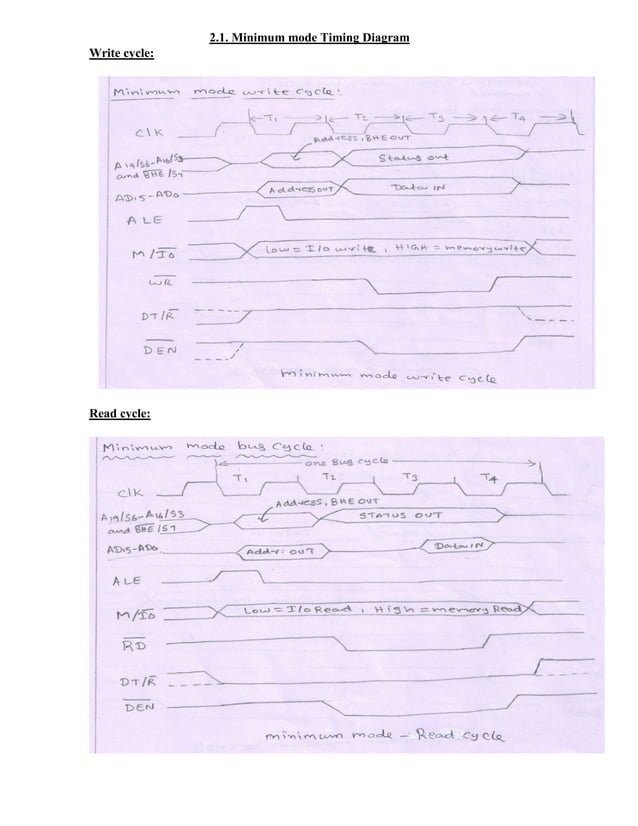 2.1. Minimum mode Timing Diagram
Write cycle:
Minimum mode write cycle:
T1 T2 T3 T4
Clk
Address, B̅H̅E̅ OUT
A19/S6-A16/S3
and B̅H̅E̅/S7
Status out
AD15-AD0
Address out
Data IN
ALE
M/I̅O̅
Low = I/o write, HIGH = memory write
W̅R̅
DT/R̅
D̅E̅N̅
Minimum mode write cycle
Read cycle:
Minimum mode bus Cycle:
one Bus cycle
T1 T2 T3 T4
Clk
Address, B̅H̅E̅ OUT
A19/S6-A16/S3
and B̅H̅E̅/S7
STATUS OUT
AD15-AD0
Addr: OUT
Data IN
ALE
M/I̅O̅
Low = I/o Read, High = memory Read
R̅D̅
DT/R̅
D̅E̅N̅
minimum mode - Read cycle